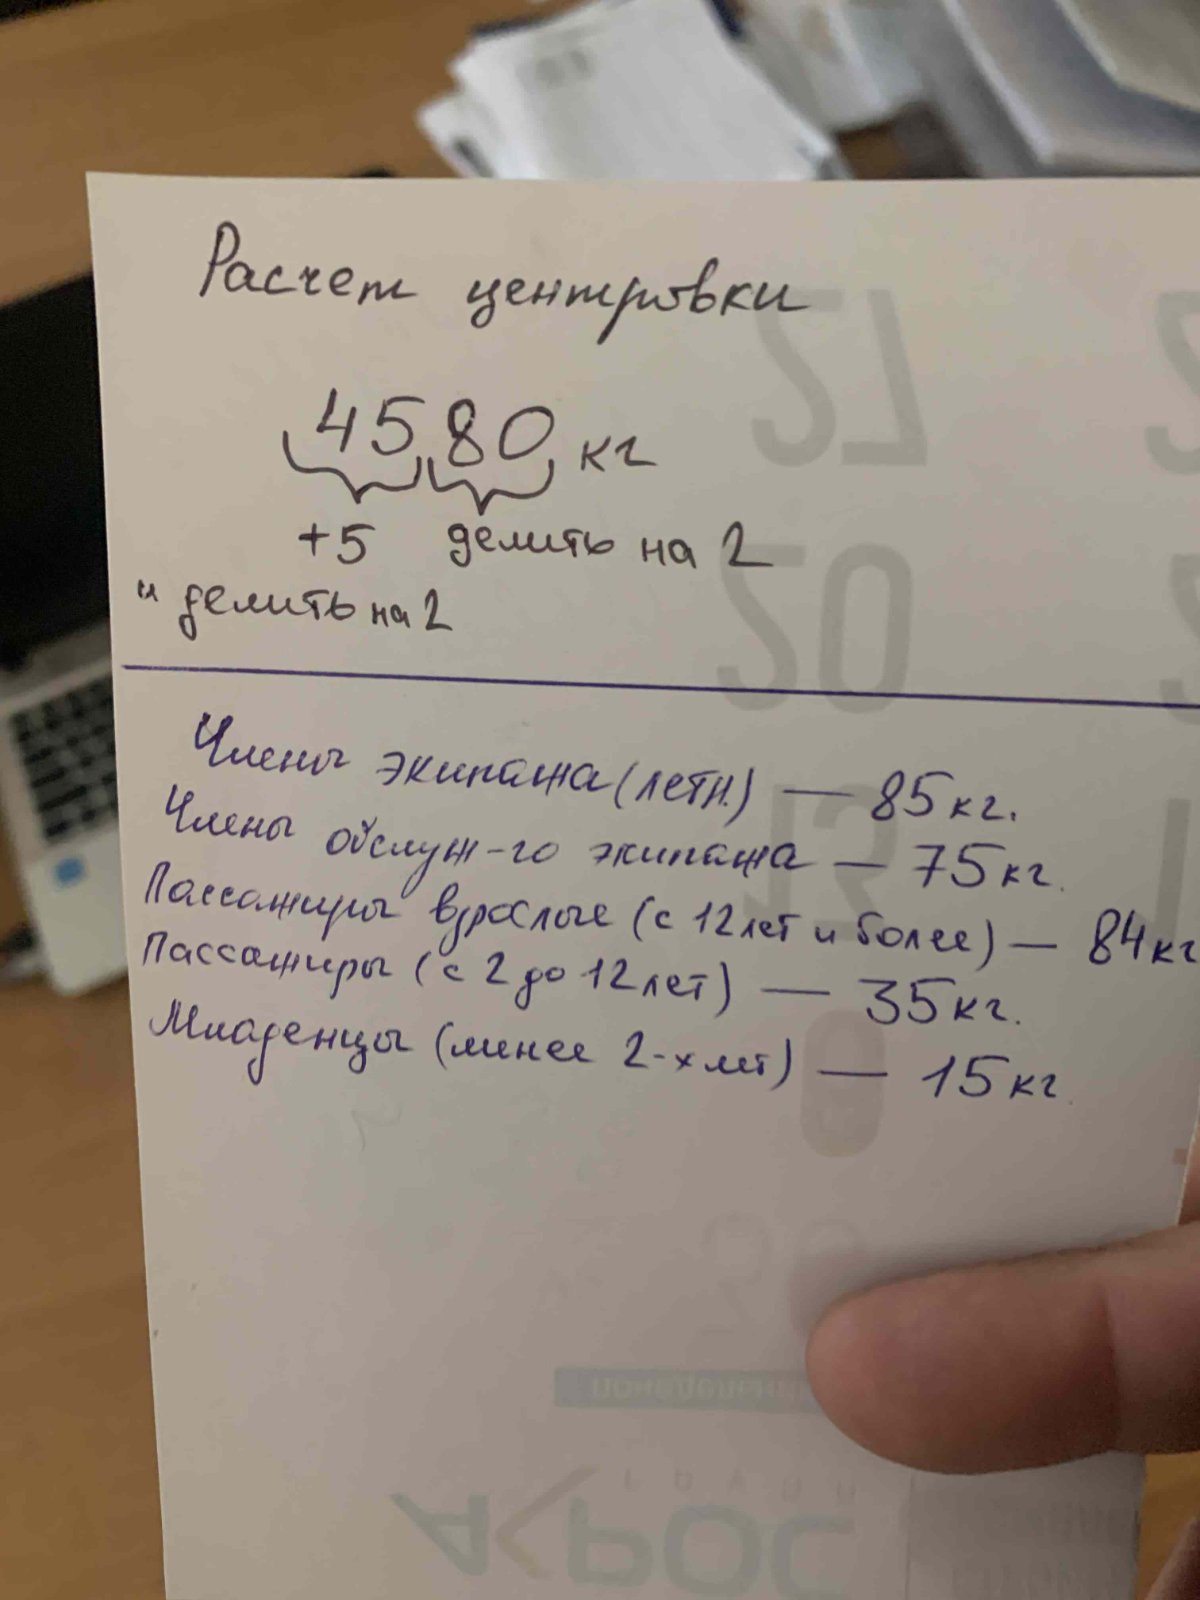 Расчет центровки
4580 кг
+5 делить на 2
и делить на 2
Члены экипажа (летн.) — 85 кг.
Члены обслуж-го экипажа — 75 кг.
Пассажиры взрослые (с 12 лет и более) — 84 кг
Пассажиры (с 2 до 12 лет) — 35 кг.
Младенцы (менее 2-х лет) — 15 кг
27
20
13
6
понедельник
группа
АКРОС